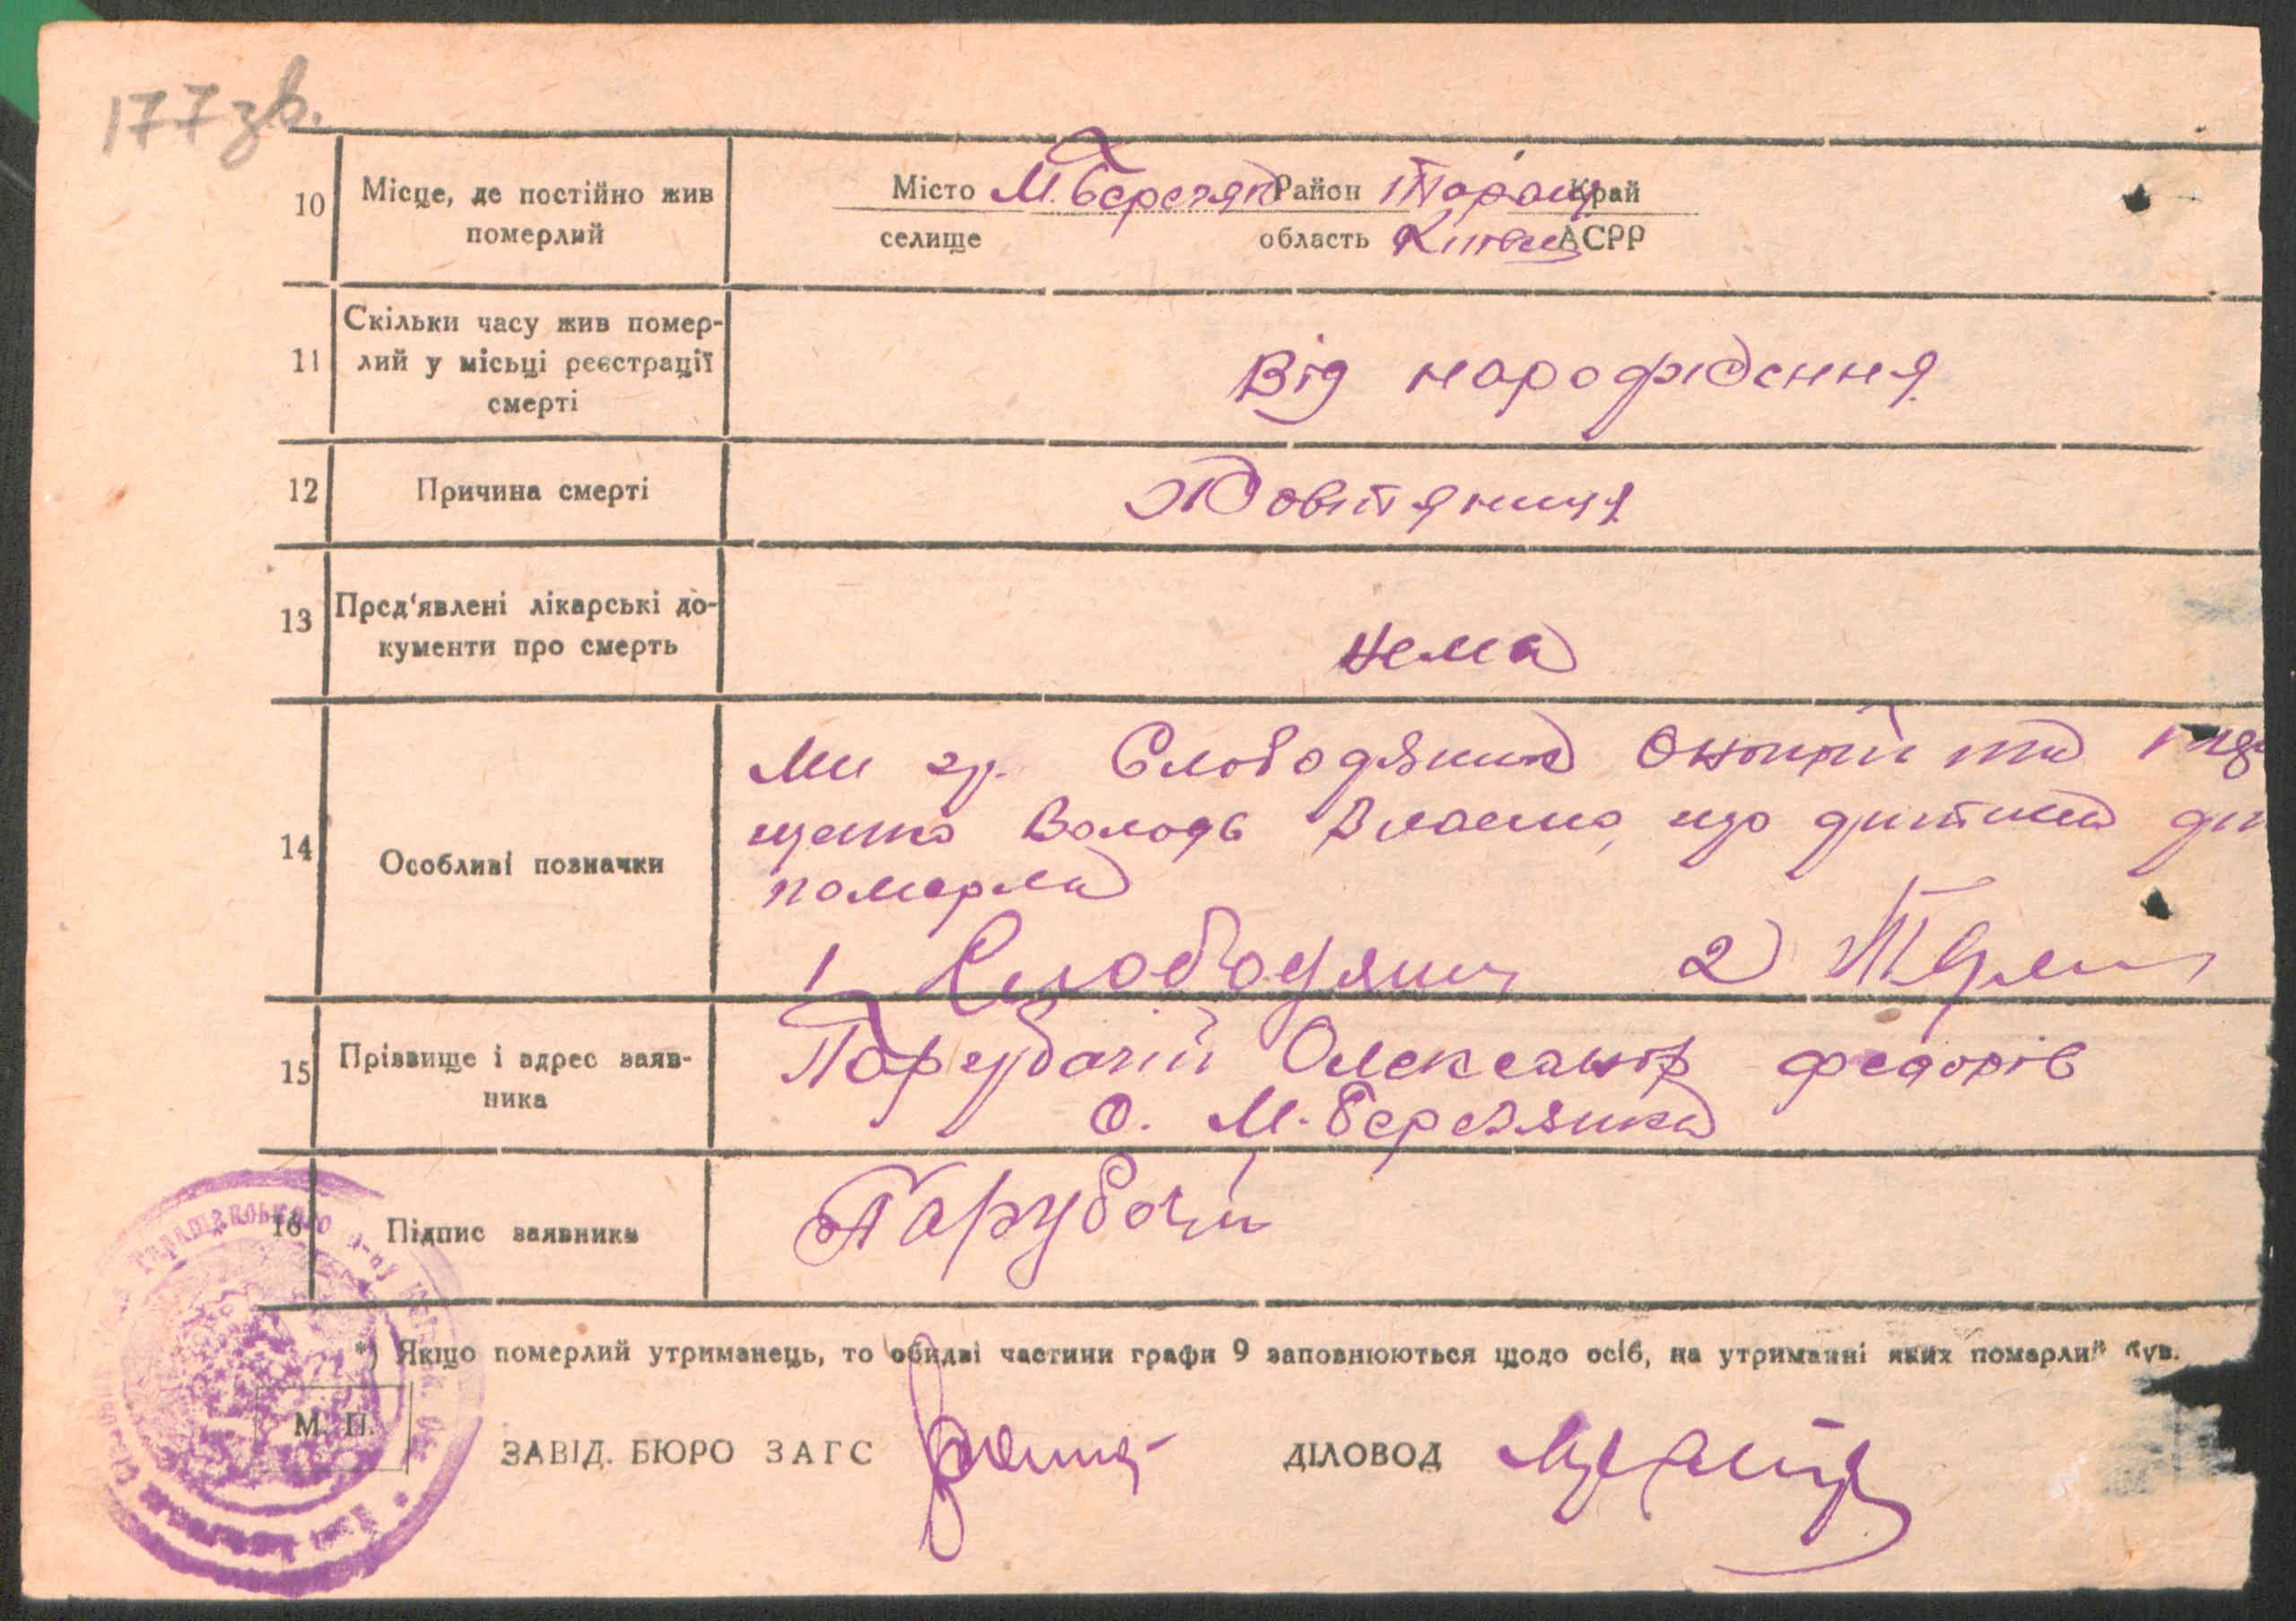 177 зв.
10 Місце, де постійно жив померлий
Місто М. Березян Район Таращ Край
селище область Київс АСРР
11 Скільки часу жив помер-
лий у місьці реєстрації
смерті
Від народження
12 Причина смерті
Жовтяниця
13 Пред'явлені лікарські до-
кументи про смерть
нема
14 Особливі позначки
Ми гр. Слободяник та
щенко Володь що дитина
померла
1 Слободяник 2)
15 Прізвище і адрес заяв-
ника
Парубочий Олександр Федорів
С. М. Березянка
16 Підпис заявника
Парубочий
*) Якщо померлий утриманець, то обидві частини графи 9 заповнюються щодо осіб, на утриманні яких померлий був.
М. П.
ЗАВІД. БЮРО ЗАГС ДІЛОВОД
Таращанського р-ну